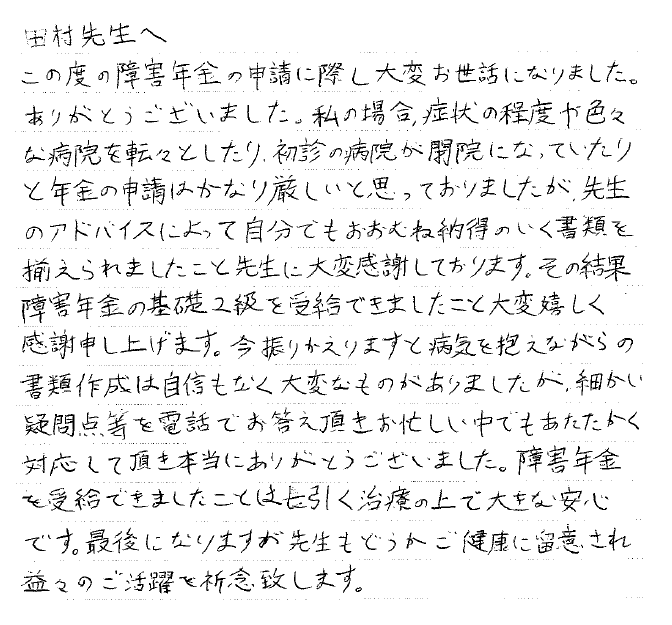 田村先生へ
この度の障害年金の申請に際し大変お世話になりました。
ありがとうございました。私の場合,症状の程度や色々
な病院を転々としたり、初診の病院が閉院になっていたり
と年金の申請はかなり厳しいと思っておりましたが、先生
のアドバイスによって自分でもおおむね納得のいく書類を
揃えられましたこと先生に大変感謝しております。その結果
障害年金の基礎2級を受給できましたこと大変嬉しく
感謝申し上げます。今振りかえりますと病気を抱えながらの
書類作成は自信もなく大変なものがありましたが、細かい
疑問点等を電話でお答え頂きお忙しい中でもあたたかく
対応して頂き本当にありがとうございました。障害年金
を受給できましたことは長引く治療の上で大きな安心
です。最後になりますが先生もどうかご健康に留意され
益々のご活躍を祈念致します。